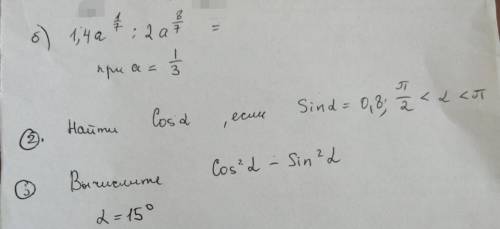 б) 1,4a^{1/7} : 2a^{8/7} =
при a = 1/3
②. Найти Cosα, если Sinα = 0,8; π/2 < α < π
③ Вычислите Cos²α − Sin²α
α = 15°